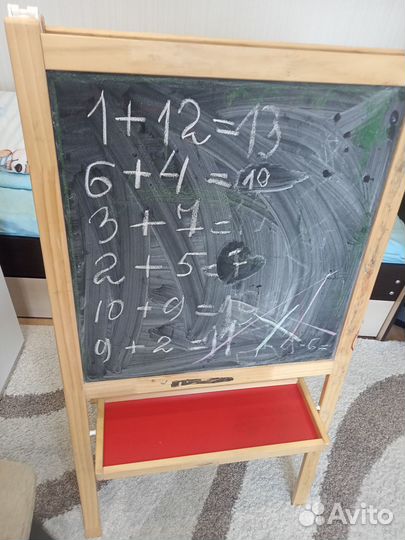 1+12=13
6+4=10
3+7=
2+5=7
10+9=1
9+2=11
Avito